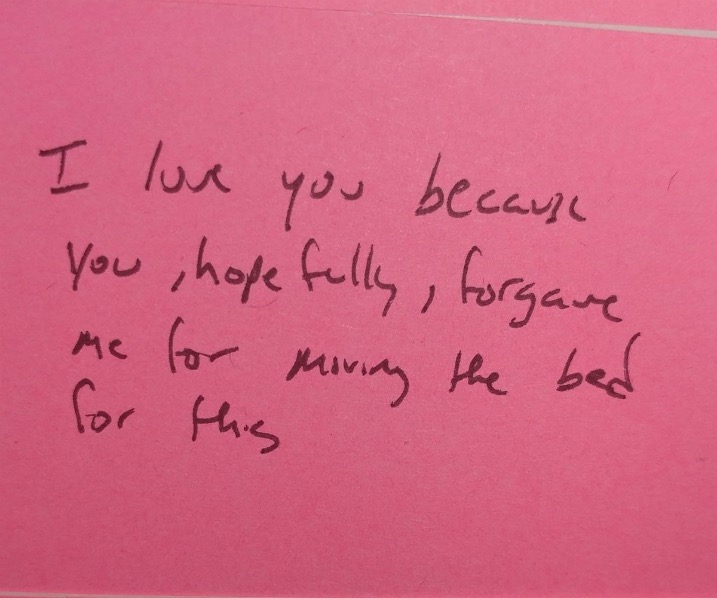 I love you because
you, hopefully, forgave
me for moving the bed
for this